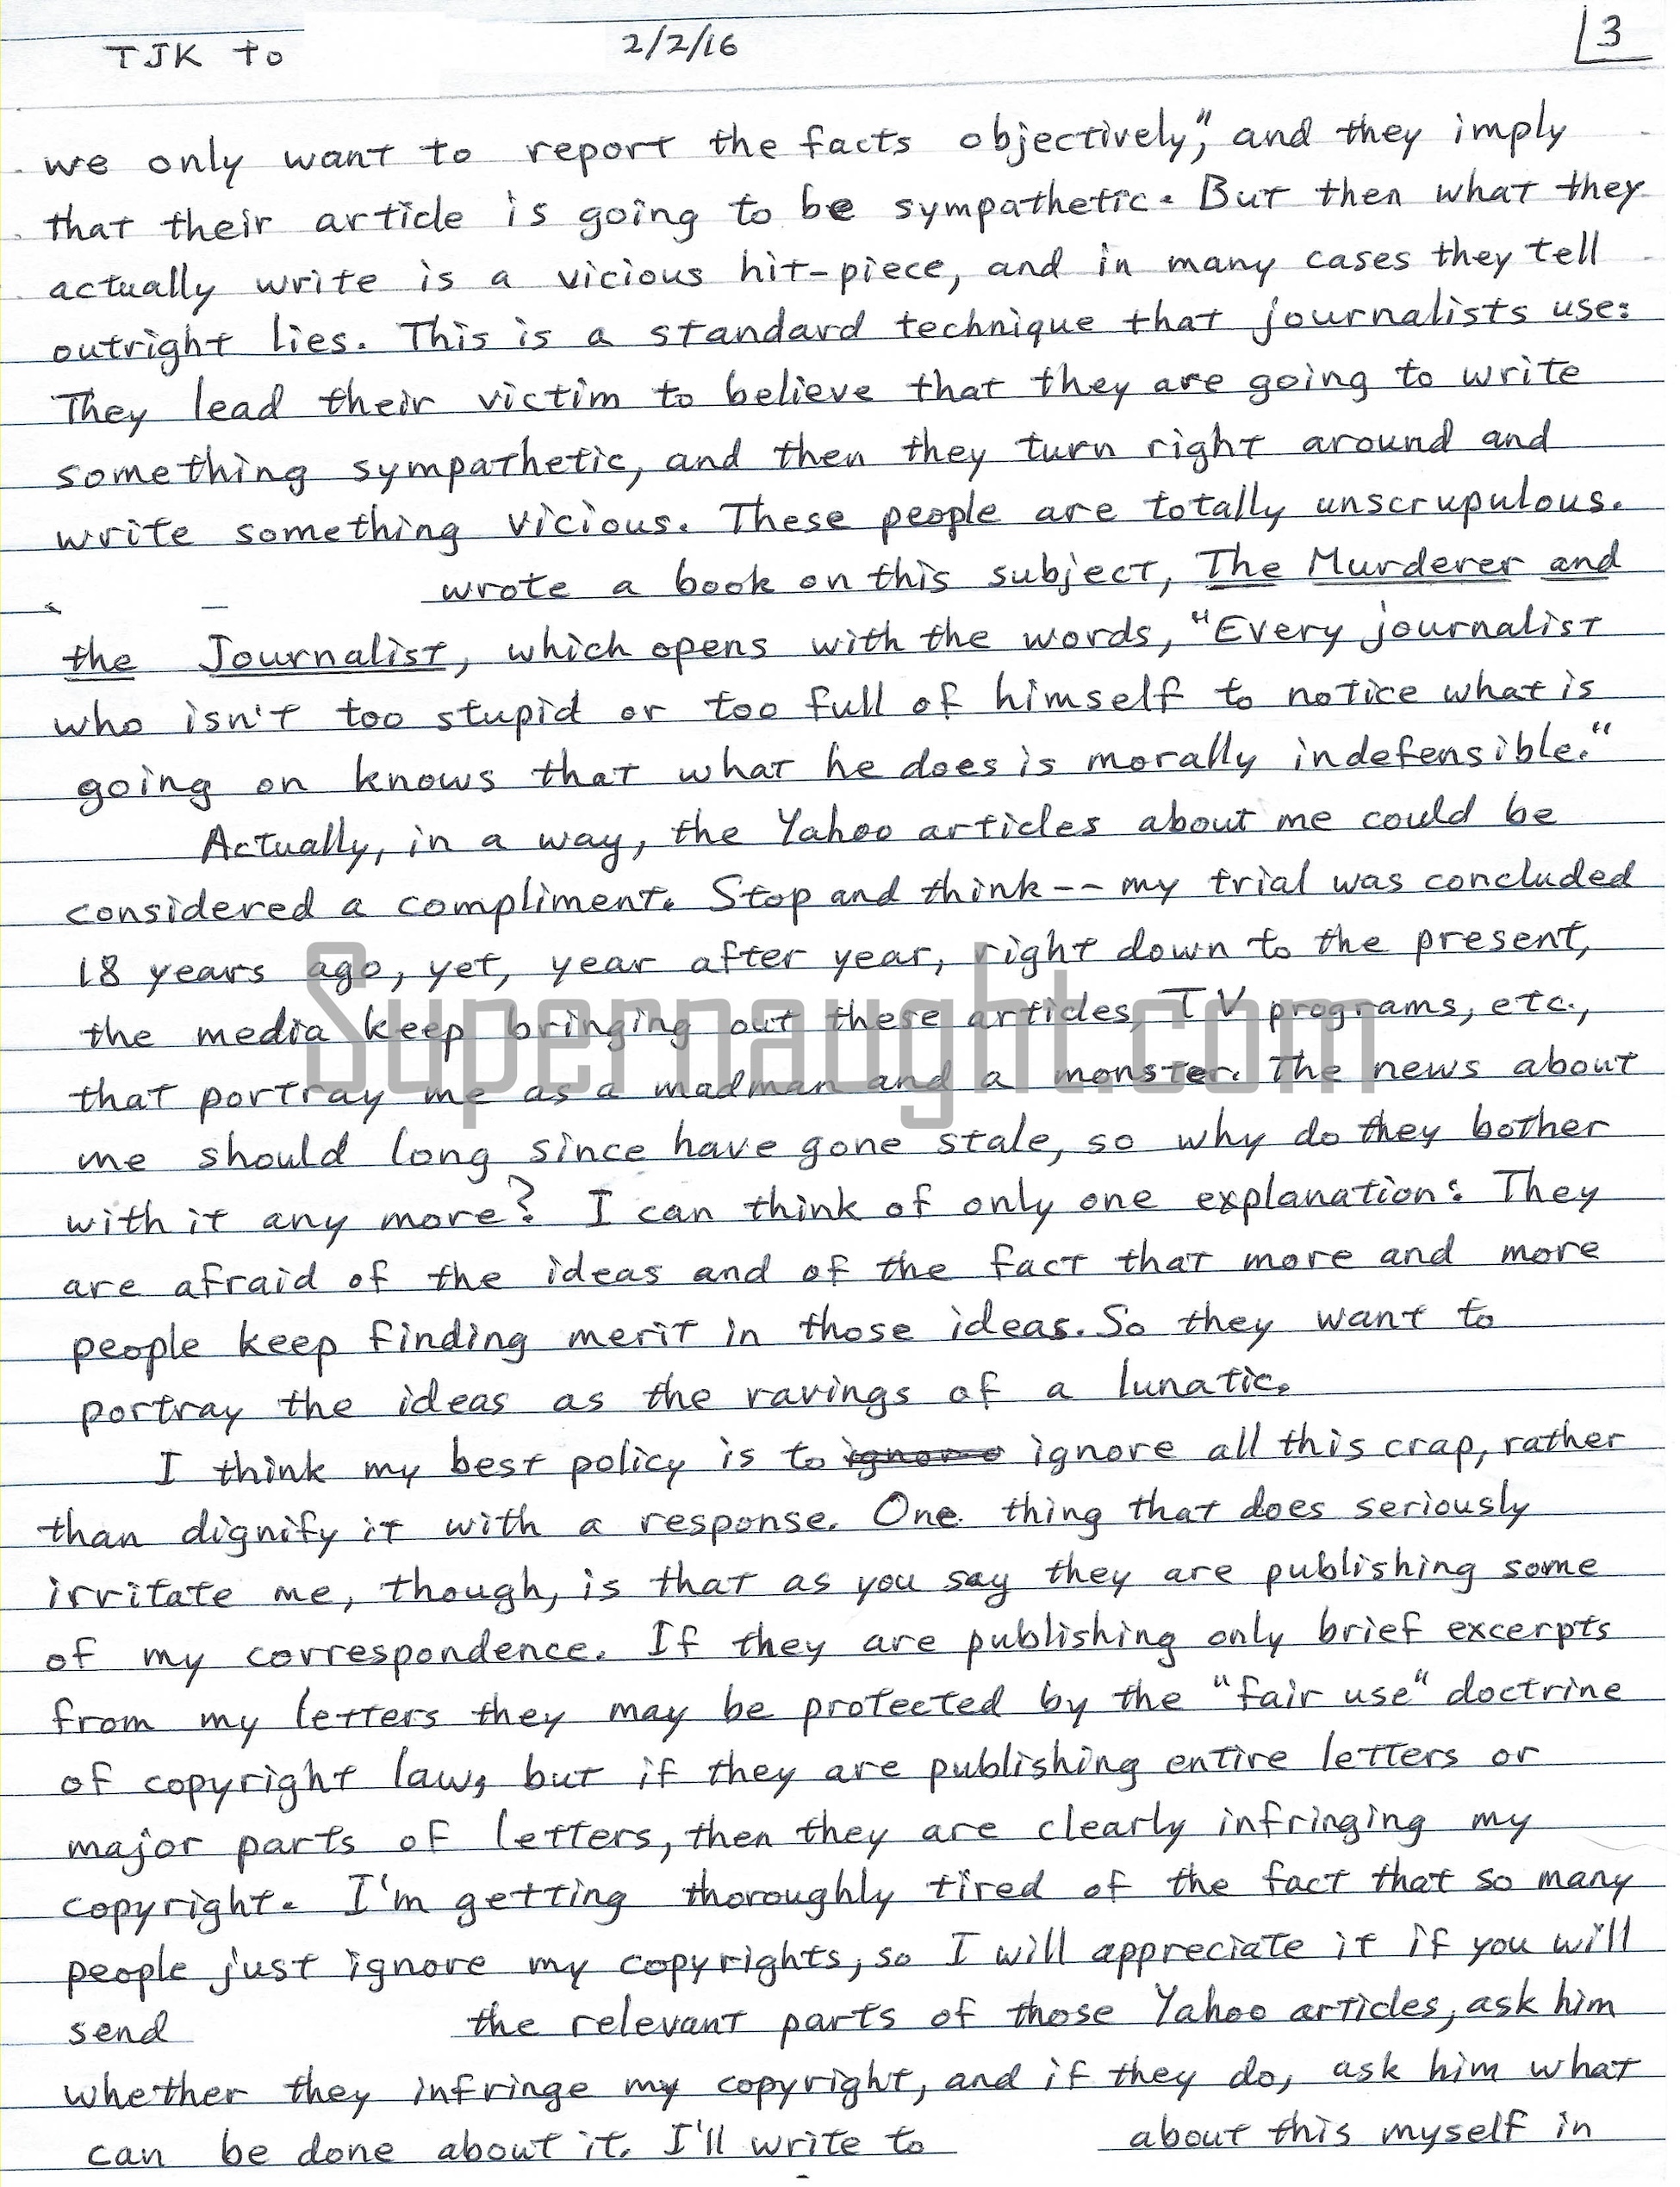 TJK to 2/2/16 3
we only want to report the facts objectively," and they imply
that their article is going to be sympathetic. But then what they
actually write is a vicious hit-piece, and in many cases they tell
outright lies. This is a standard technique that journalists use:
They lead their victim to believe that they are going to write
something sympathetic, and then they turn right around and
write something vicious. These people are totally unscrupulous.
wrote a book on this subject, The Murderer and
the Journalist, which opens with the words, "Every journalist
who isn't too stupid or too full of himself to notice what is
going on knows that what he does is morally indefensible."
Actually, in a way, the Yahoo articles about me could be
considered a compliment. Stop and think -- my trial was concluded
18 years ago, yet, year after year, right down to the present,
the media keep bringing out these articles, TV programs, etc.,
that portray me as a madman and a monster. The news about
Supernaught.com
me should long since have gone stale, so why do they bother
with it any more? I can think of only one explanation: They
are afraid of the ideas and of the fact that more and more
people keep finding merit in those ideas. So they want to
portray the ideas as the ravings of a lunatic.
I think my best policy is to ignore ignore all this crap, rather
than dignify it with a response. One thing that does seriously
irritate me, though, is that as you say they are publishing some
of my correspondence. If they are publishing only brief excerpts
from my letters they may be protected by the "fair use" doctrine
of copyright law, but if they are publishing entire letters or
major parts of letters, then they are clearly infringing my
copyright. I'm getting thoroughly tired of the fact that so many
people just ignore my copyrights, so I will appreciate it if you will
send the relevant parts of those Yahoo articles, ask him
whether they infringe my copyright, and if they do, ask him what
can be done about it. I'll write to about this myself in